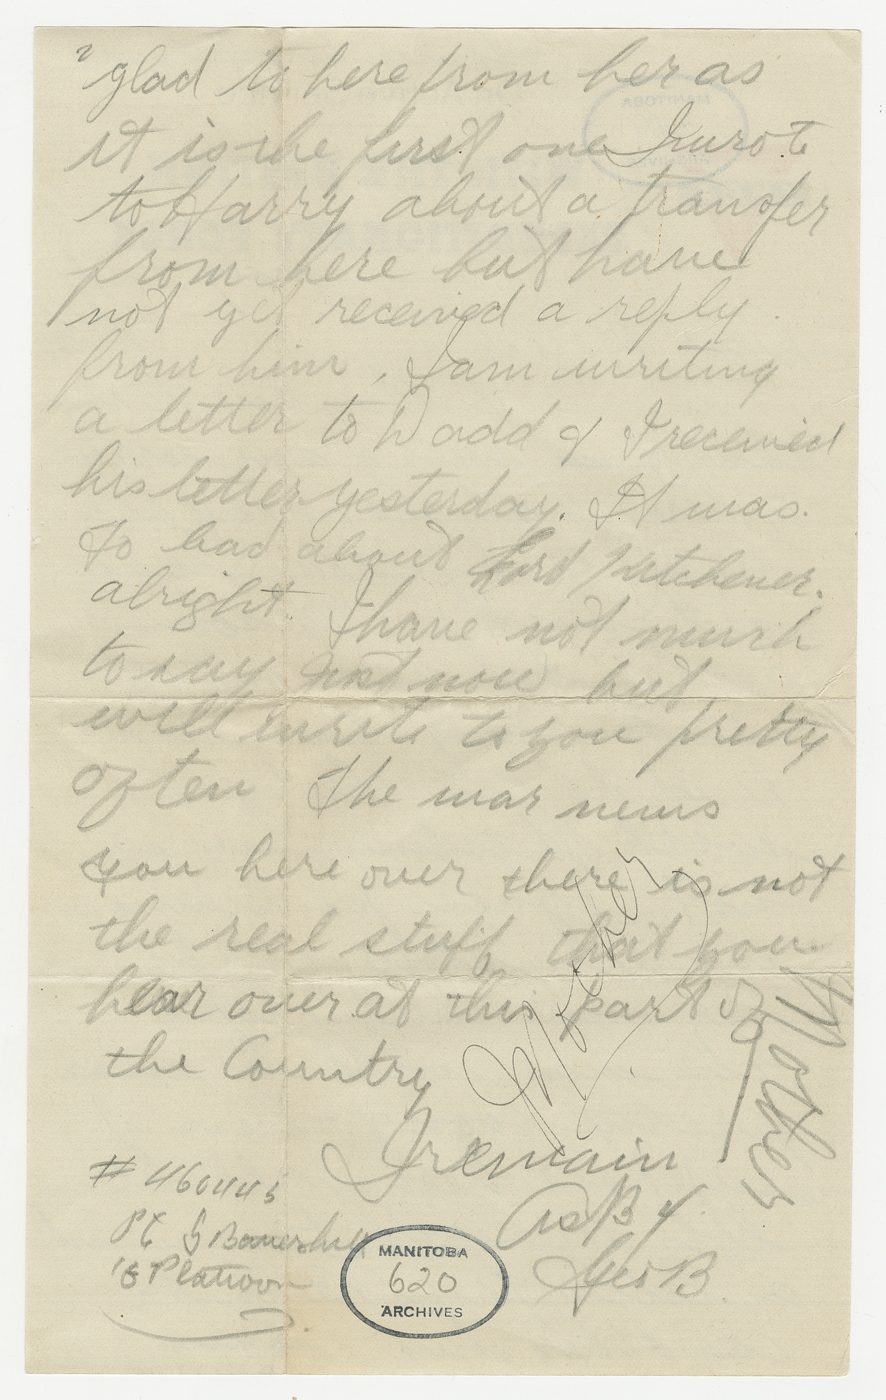 2
glad to here from her as
it is the first one I wrote
to Harry about a transfer
from here but have
not yet received a reply
from him, I am writing
a letter to Dadd & I received
his letter yesterday. It was.
To bad about Lord Kitchener.
alright. I have not much
to say just now but
will write to you pretty
often The war news
you here over there is not
the real stuff that you
hear over at this part of
the Country
Mother
Mother
I remain
As B 4
Geo B.
# 460445
Pt G
15 Platoon
MANITOBA
620
ARCHIVES